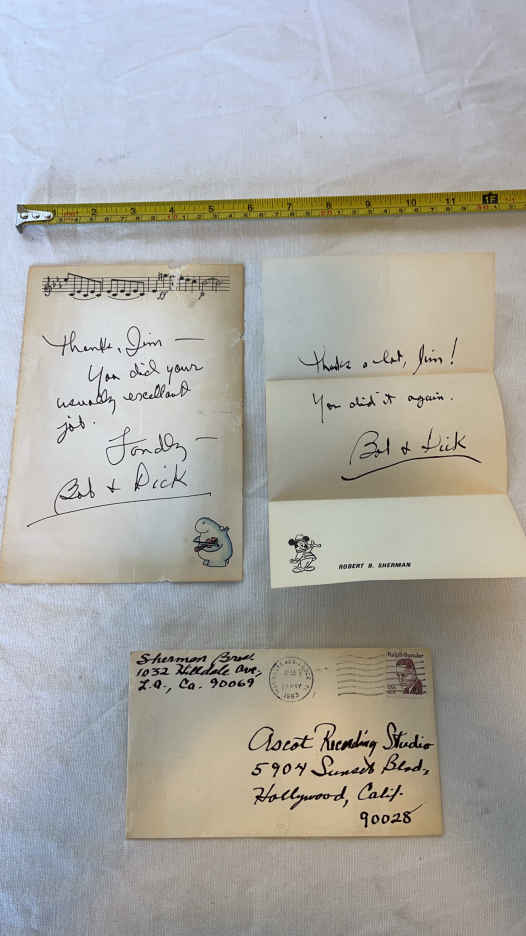 2 3 4 5 6 7 8 9 10 11 1F
ff p
Thanks, Jim —
You did your
usually excellant
job.
Fondly —
Bob & Dick
Thanks a lot, Jim!
You did it again.
Bob & Dick
ROBERT B. SHERMAN
Sherman Bros.
1032 Hilldale Ave,
L.A., Ca. 90069
1983
Ralph Bunche
Ascot Recording Studio
5904 Sunset Blvd,
Hollywood, Calif.
90028